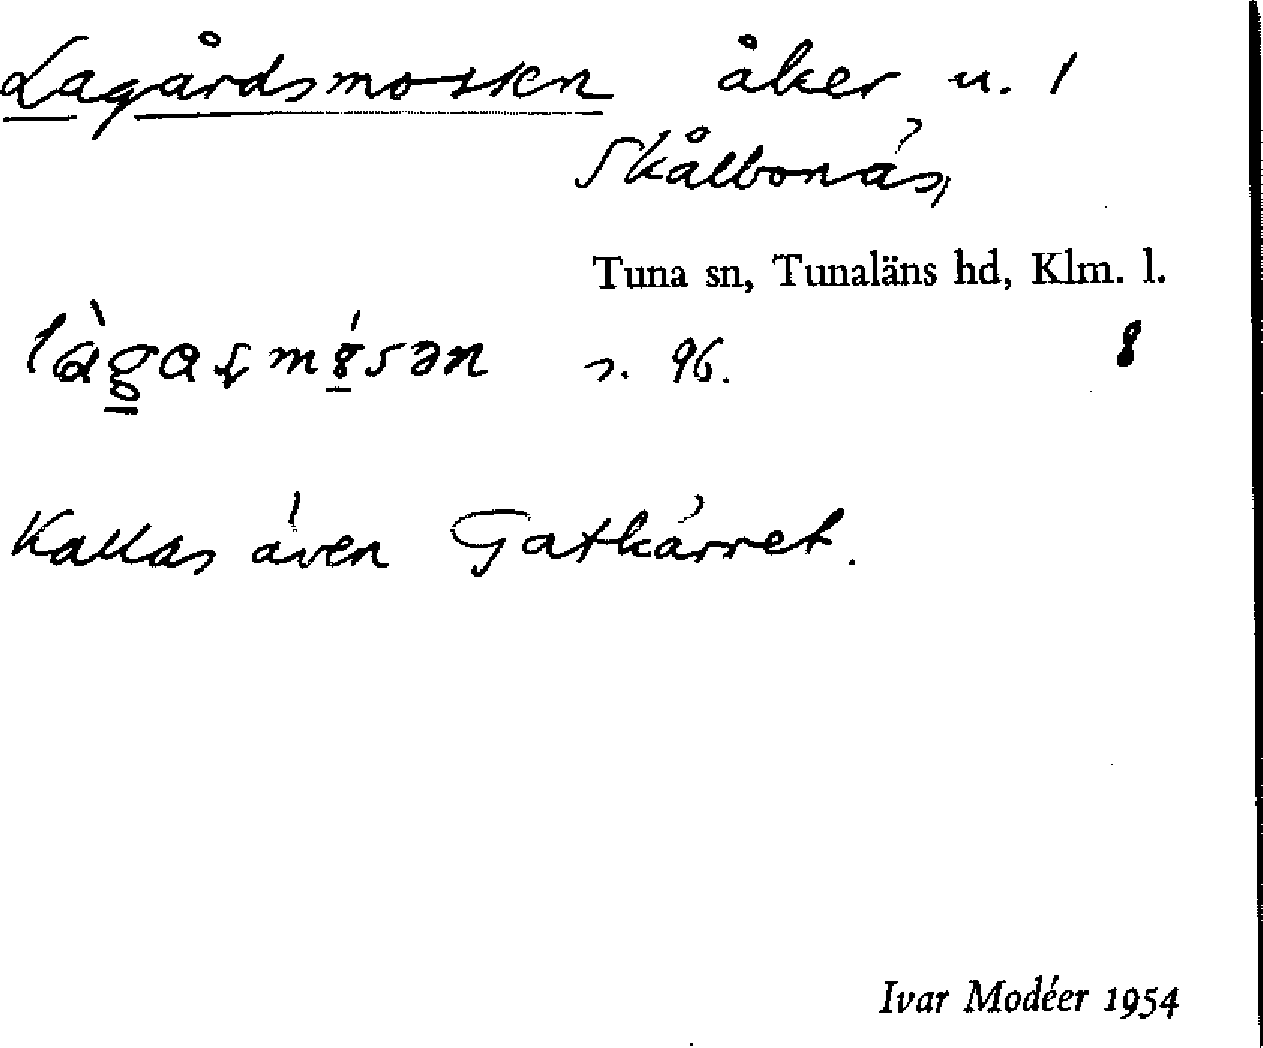 Lagårdsmossen åker u. 1
Skålbonäs,
Tuna sn, Tunaläns hd, Klm. l.
s. 96. 8
Kallas även Gatkärret.
Ivar Modéer 1954